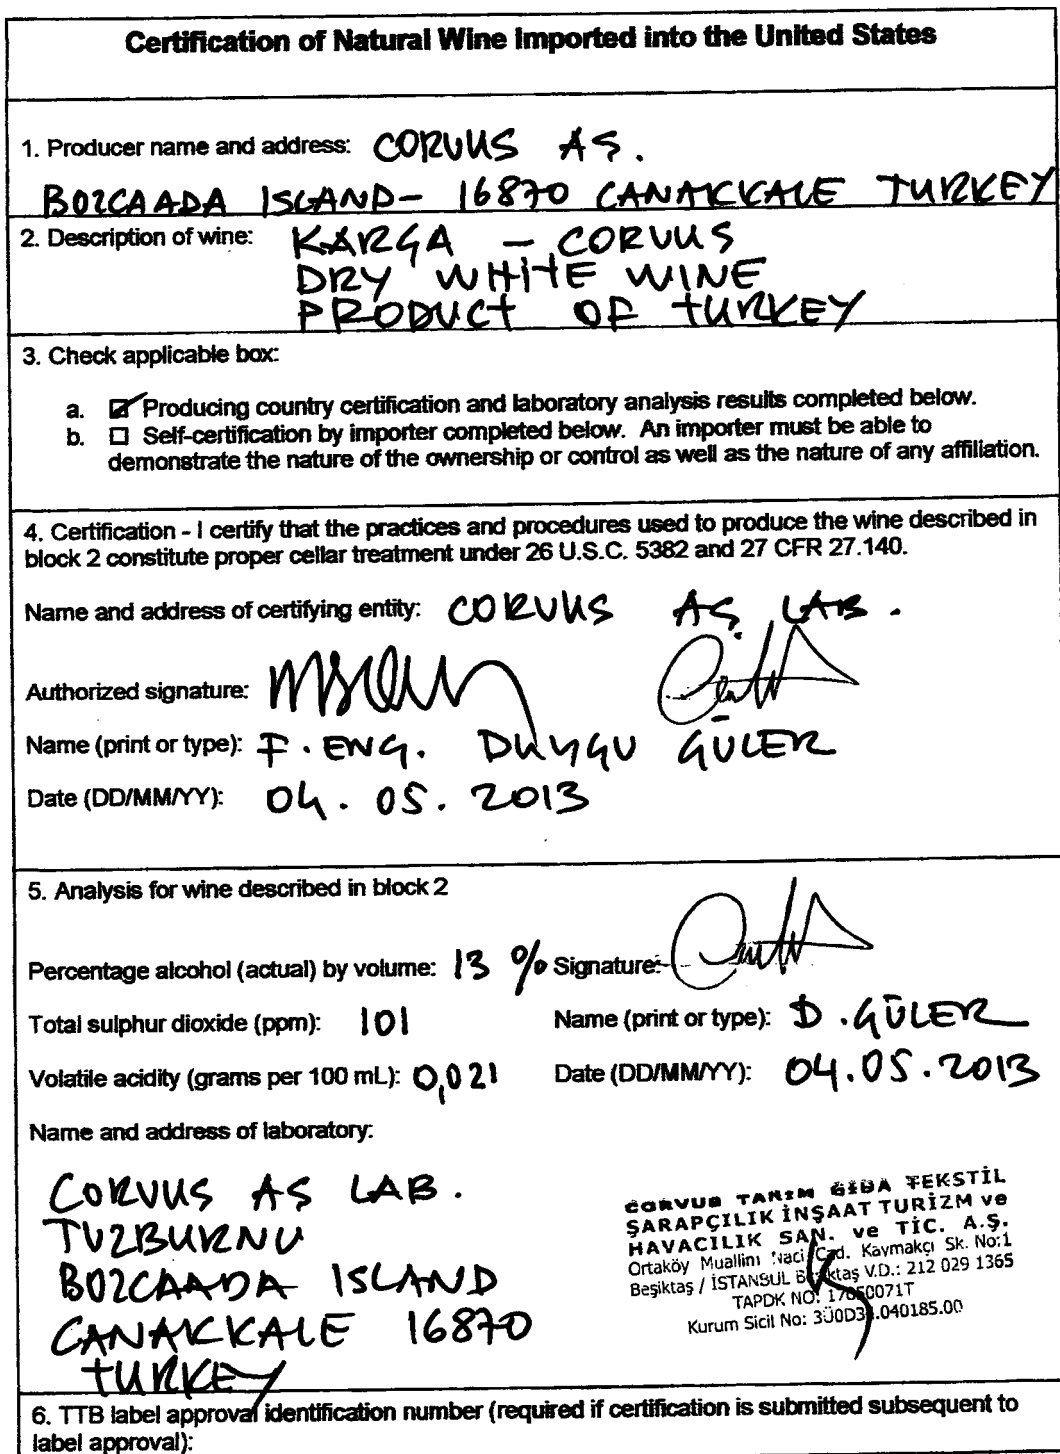 Certification of Natural Wine Imported into the United States
1. Producer name and address: CORVUS AŞ.
BOZCAADA ISLAND- 16870 CANAKKALE TURKEY
2. Description of wine: KARGA - CORVUS
DRY WHITE WINE
PRODUCT OF TURKEY
3. Check applicable box:
a. ☑ Producing country certification and laboratory analysis results completed below.
b. ☐ Self-certification by importer completed below. An importer must be able to
demonstrate the nature of the ownership or control as well as the nature of any affiliation.
4. Certification - I certify that the practices and procedures used to produce the wine described in
block 2 constitute proper cellar treatment under 26 U.S.C. 5382 and 27 CFR 27.140.
Name and address of certifying entity: CORVUS AŞ LAB.
Authorized signature:
Name (print or type): F. ENG. DUYGU GÜLER
Date (DD/MM/YY): 04.05.2013
5. Analysis for wine described in block 2
Percentage alcohol (actual) by volume: 13 % Signature:
Total sulphur dioxide (ppm): 101 Name (print or type): D. GÜLER
Volatile acidity (grams per 100 mL): 0,021 Date (DD/MM/YY): 04.05.2013
Name and address of laboratory:
CORVUS AŞ LAB.
TUZBURNU
BOZCAADA ISLAND
CANAKKALE 16870
TURKEY
CORVUS TARIM GIDA TEKSTİL
ŞARAPÇILIK İNŞAAT TURİZM ve
HAVACILIK SAN. ve TİC. A.Ş.
Ortaköy Muallim Naci Cad. Kaymakçı Sk. No:1
Beşiktaş / İSTANBUL Beşiktaş V.D.: 212 029 1365
TAPDK NO:
Kurum Sicil No:
6. TTB label approval identification number (required if certification is submitted subsequent to
label approval):